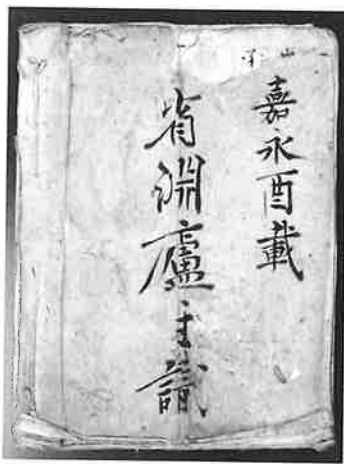 嘉永酉載
省淵廬主識